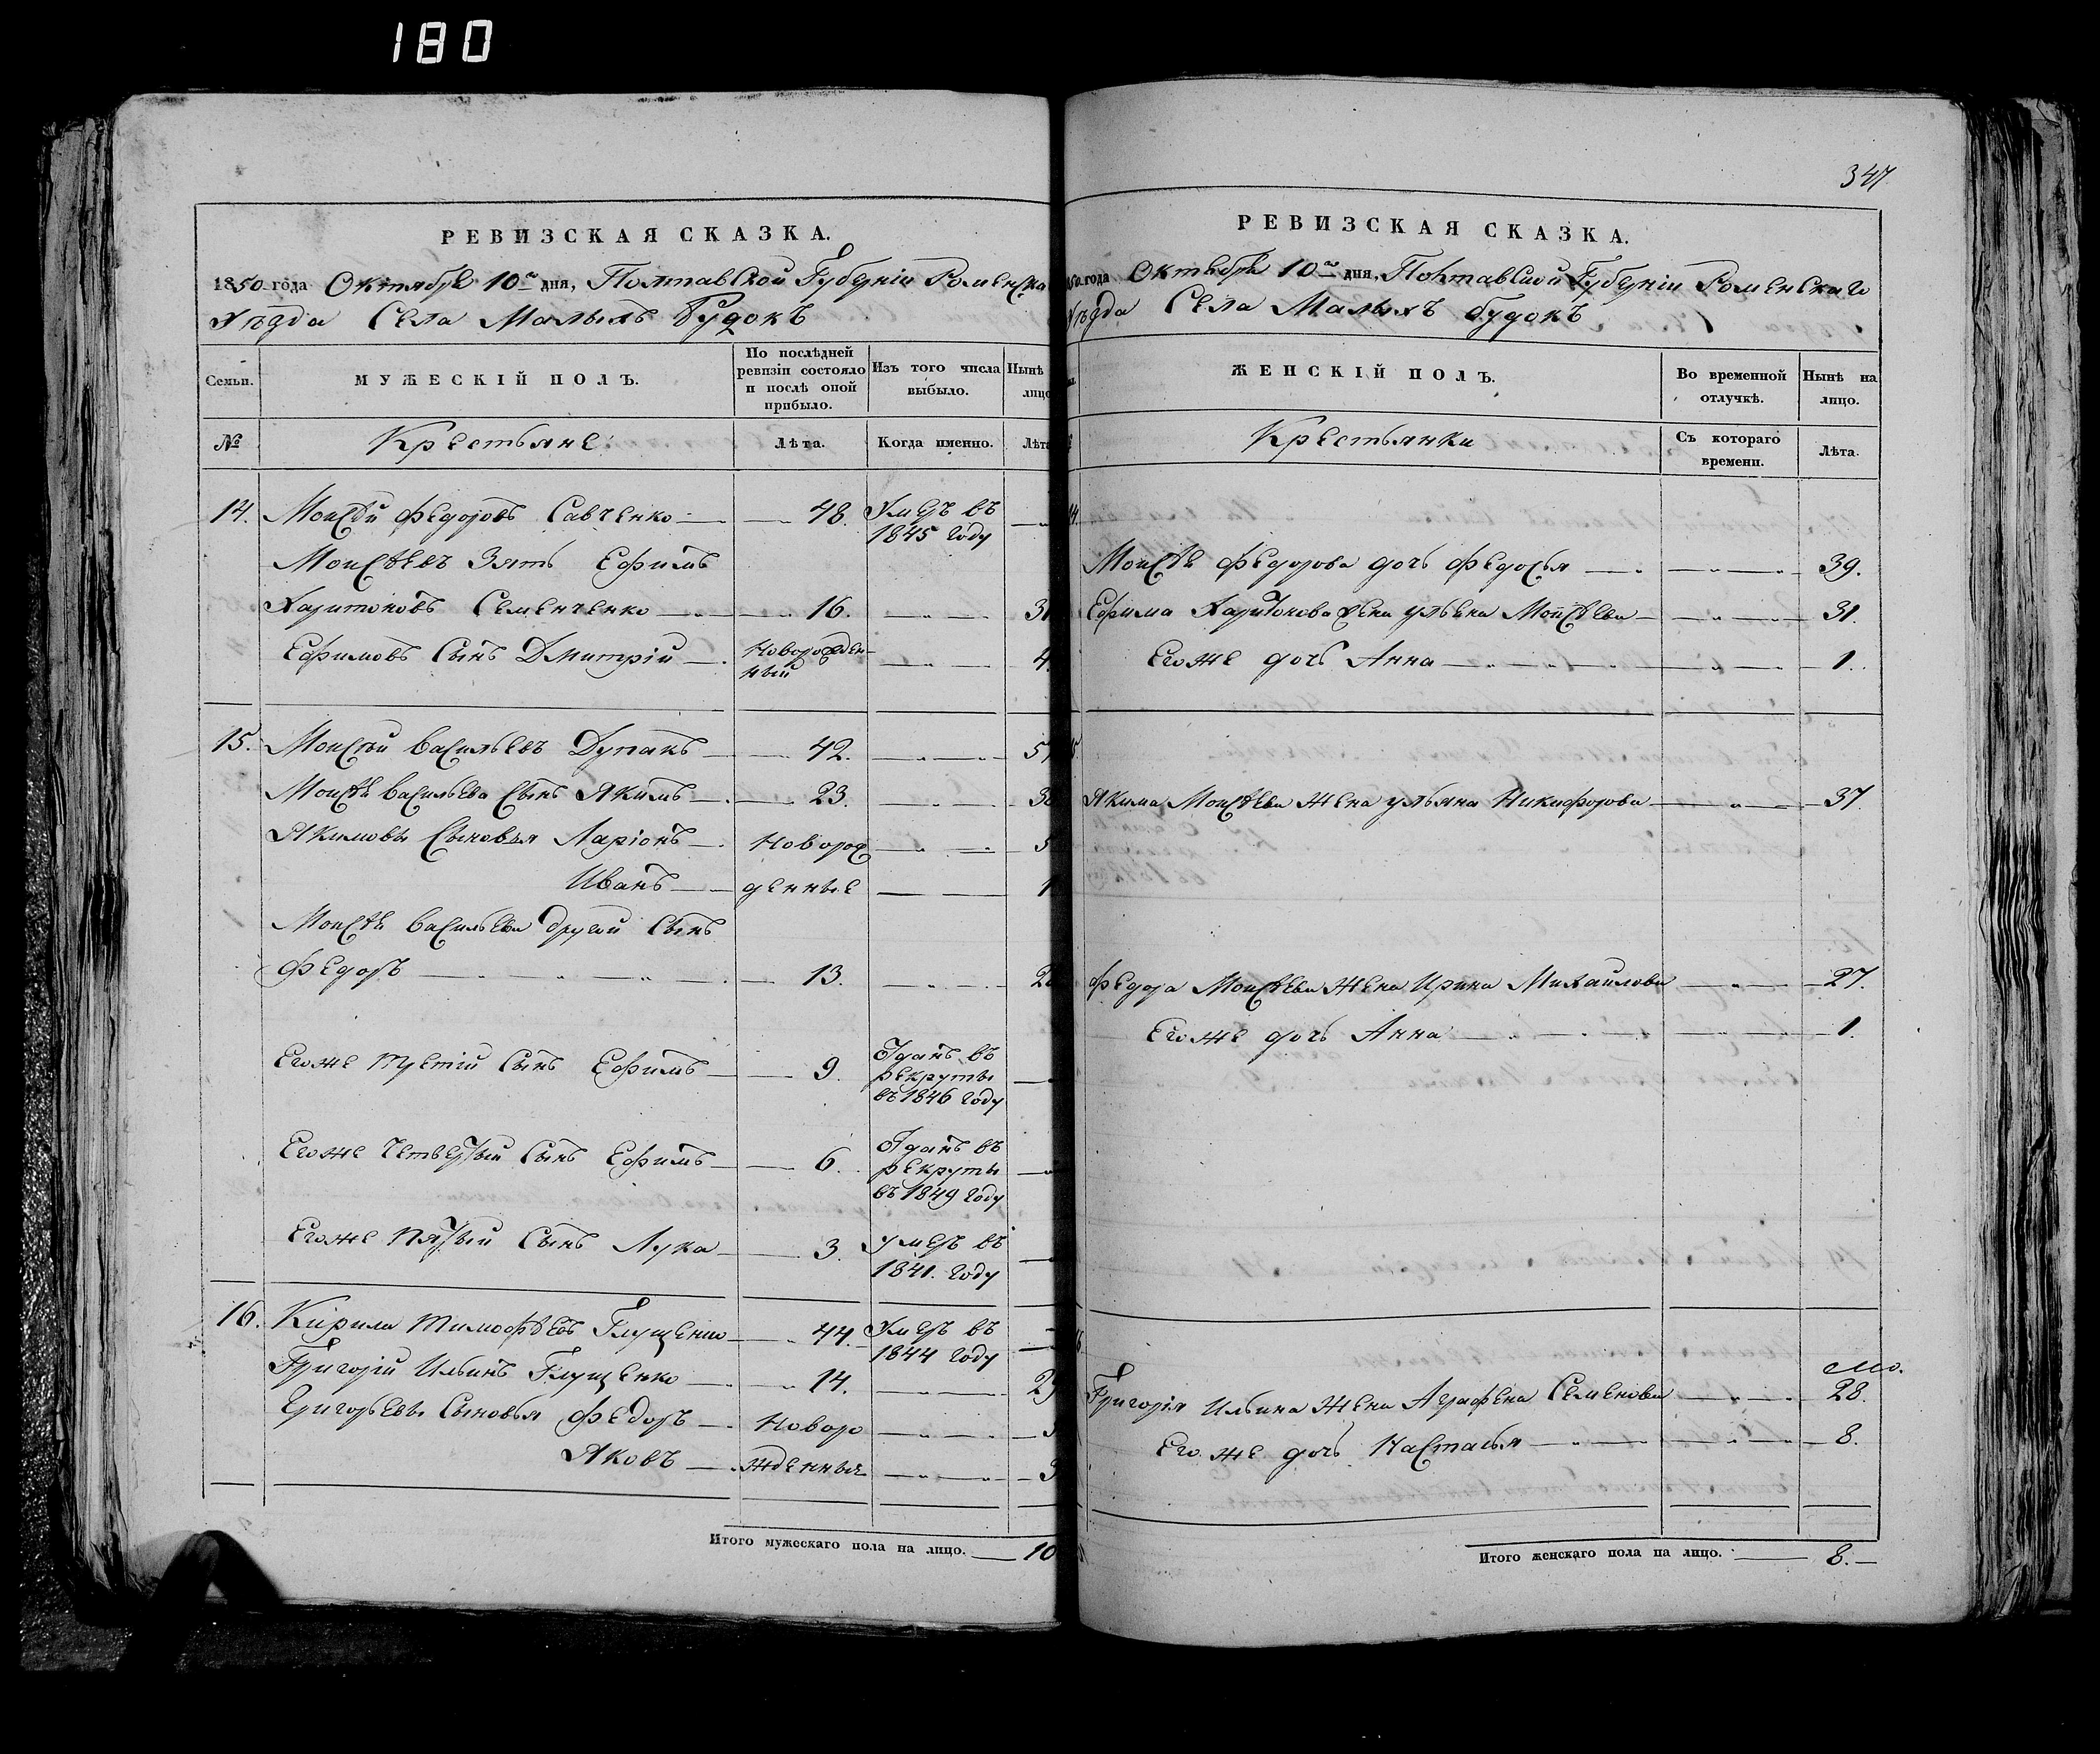 180
РЕВИЗСКАЯ СКАЗКА.
1850 года Октября 10го дня, Полтавской Губерніи Роменска
Уѣзда Села Малыхъ Будокъ
Семьи.
МУЖЕСКІЙ ПОЛЪ.
По послѣдней ревизіи состояло и послѣ оной прибыло.
Изъ того числа выбыло.
Нынѣ лицо
№
Крестьяне
Лѣта.
Когда именно.
Лѣта
14. Моисей Федоровъ Савченко 48. Умеръ въ 1845 году
Моисѣевъ Зять Ефимъ
Харитоновъ Семенченко 16. 31
Ефимовъ Сынъ Дмитрій Новорожденный 4
15. Моисей Васильевъ 42.
Моисѣя Васильева Сынъ Якимъ 23. 38
Якимовы Сыновья Ларіонъ Новорож
Иванъ денные 1
Моисѣя Васильева другой Сынъ
Федоръ 13. 28
Его же третій Сынъ Ефимъ 9. Зданъ въ рекруты въ 1846 году
Его же Четвертый Сынъ Ефимъ 6. Зданъ въ рекруты въ 1849 году
Его же пятый Сынъ Лука 3. умеръ въ 1841. году
16. Кирила Тимофѣевъ Глущенко 44. Умеръ въ 1844 году
Григорій Ильинъ Глущенко 14. 29
Григорьевы Сыновья Федоръ Новоро
Яковъ жденныя 3
Итого мужескаго пола на лицо. 10
347
РЕВИЗСКАЯ СКАЗКА.
50 года Октября 10го дня, Полтавской Губерніи Роменскаго
Уѣзда Села Малыхъ будокъ
ЖЕНСКІЙ ПОЛЪ.
Во временной отлучкѣ.
Нынѣ на лицо.
Крестьянки
Съ котораго времени.
Лѣта.
14.
Моисѣя Федорова дочь Федосья 39.
Ефима Харитонова жена ульяна Моисѣева 31.
Его же дочь Анна 1.
15.
Якима Моисѣева жена ульяна Никифорова 37.
Федора Моисѣева жена Ирина Михайлова 27.
Его же дочь Анна 1.
Григорія Ильина жена Аграфена Семенова 28.
Его же дочь Настасья 8.
Итого женскаго пола на лицо. 8.